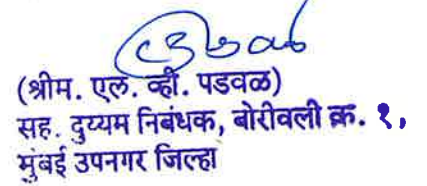 (श्रीम. एल. व्ही. पडवळ)
सह. दुय्यम निबंधक, बोरीवली क्र. १,
मुंबई उपनगर जिल्हा